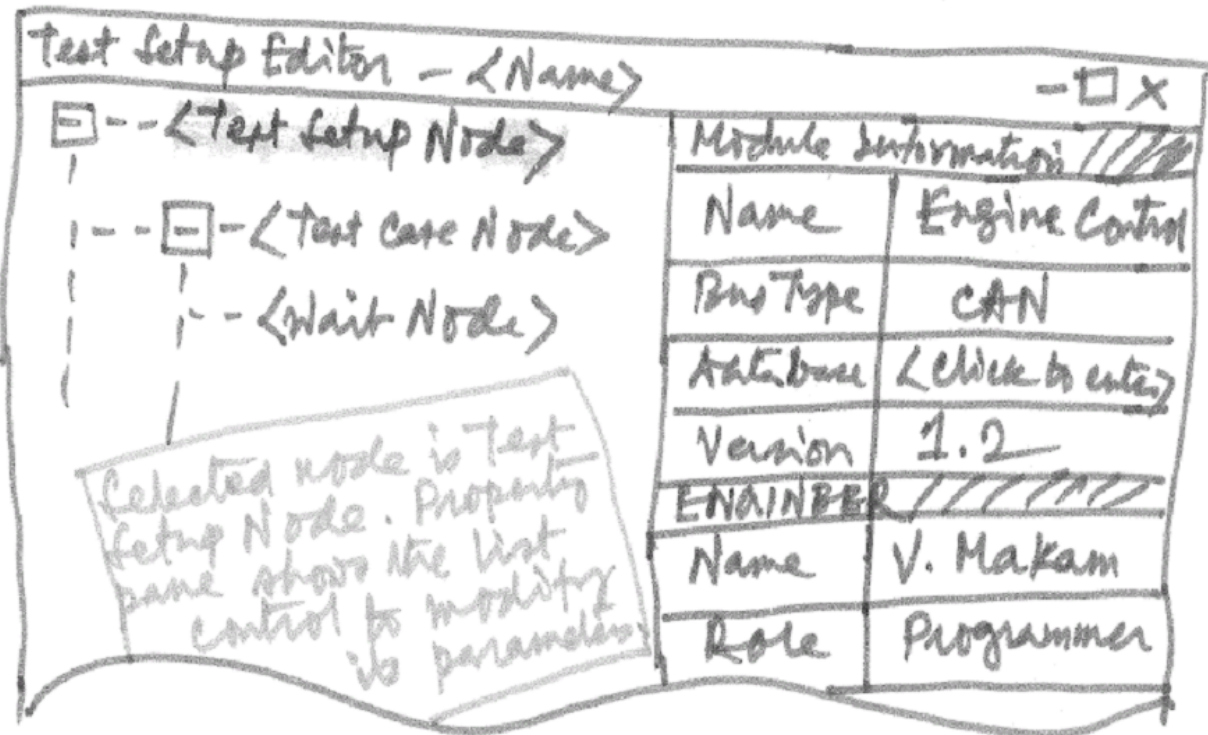 Test Setup Editor - <Name>
- □ X
<Test Setup Node>
<Test Case Node>
<Wait Node>
Selected node is Test
Setup Node. Property
pane shows the list
control to modify
its parameters.
Module Information
Name Engine Control
Bus Type CAN
Database <Click to enter>
Version 1.2
ENGINEER
Name V. Makam
Role Programmer